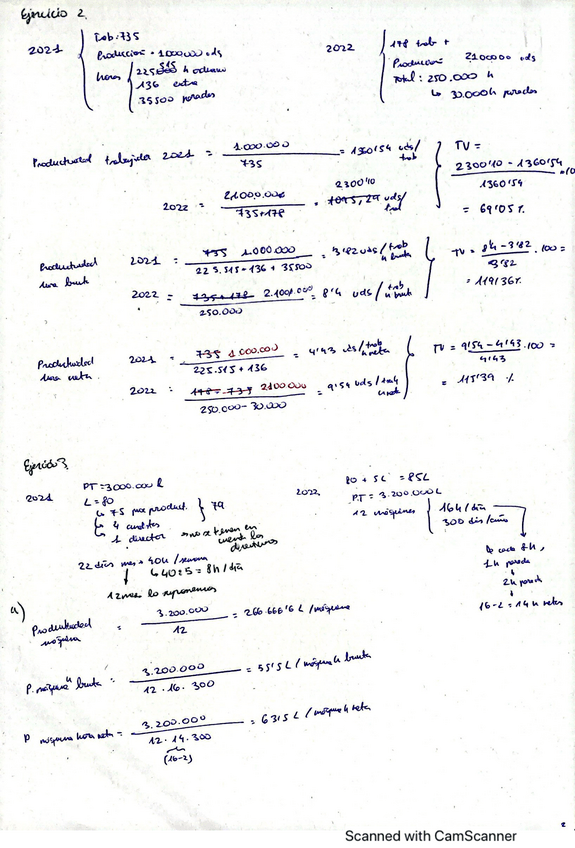 Ejercicio 2
2021
Trab: 735
Producción = 1000000 uds
horas
225.515 h ordinario
136 extra
35500 paradas
2022
178 trab +
Producción 2100000 uds
Total: 250.000 h
↳ 30.000h paradas
Productividad trabajador 2021 = 1.000.000 / 735 = 1360'54 uds/trab
2022 = 21000.000 / 735+178 = 2300'10 uds/trab
TV = 2300'10 - 1360'54 / 1360'54
= 69'05 %
Productividad hora bruta
2021 = 735 1.000.000 / 225.515 + 136 + 35500 = 3'82 uds/trab h bruta
2022 = 735+178 2.100.000 / 250.000 = 8'4 uds/trab h bruta
TV = 8'4 - 3'82 / 3'82 .100 =
= 119'36%
Productividad hora neta
2021 = 735 1.000.000 / 225.515 + 136 = 4'43 uds/trab h neta
2022 = 178 - 735 2100000 / 250.000 - 30.000 = 9'54 uds/trab h neta
TV = 9'54 - 4'43 / 4'43 .100 =
= 115'39 %
Ejercicio 3
2021
PT = 3000.000 L
L = 80
↳ 75 product.
↳ 4
↳ 1 director
79
no se tienen en cuenta los directivos
22 días mes + 40h / semana
↳ 40:5 = 8h / día
12 mes lo suponemos
2022
80 + 5L = 85L
PT = 3.200.000L
12 máquinas
16h / día
300 días/año
↳ cada 8h,
1h parada
2h parada
16-2 = 14h netas
a)
Productividad máquina = 3.200.000 / 12 = 266.666'6 L / máquina
P. máquina h bruta = 3.200.000 / 12 . 16 . 300 = 55'5 L / máquina h bruta
P máquina hora neta = 3.200.000 / 12 . 14 . 300 = 63'5 L / máquina h neta
(16-2)
2
Scanned with CamScanner